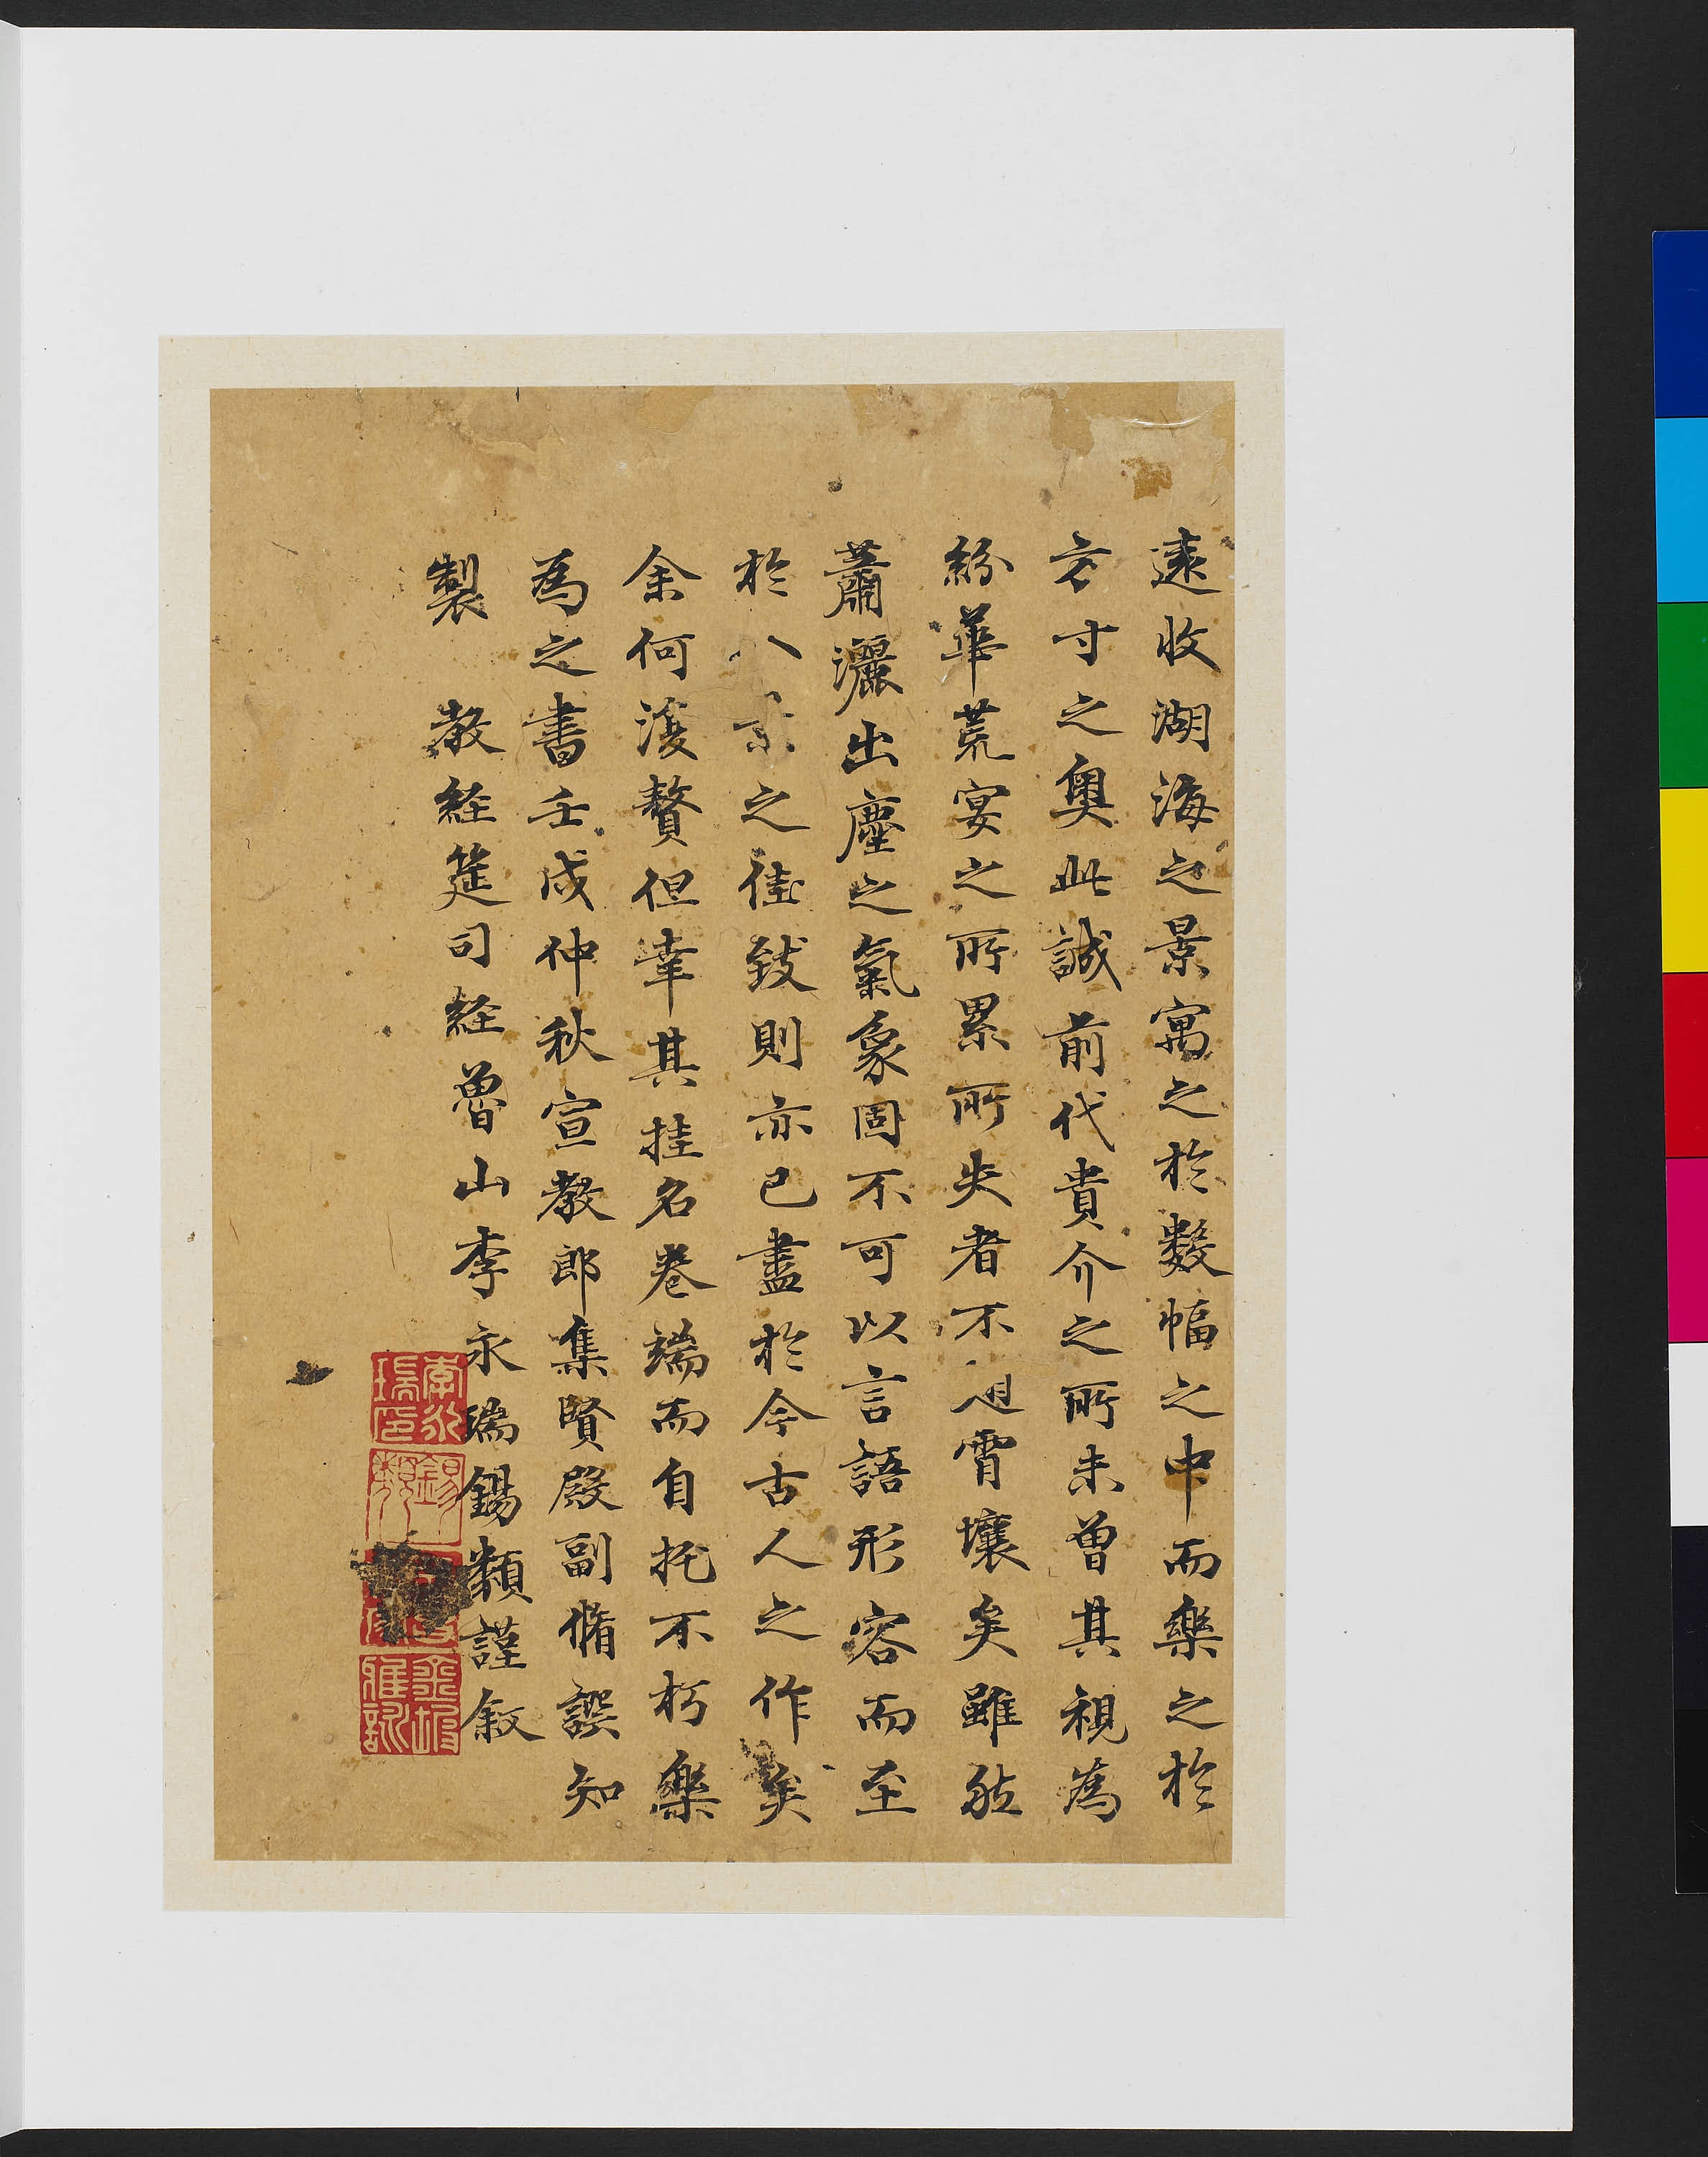 遠收湖海之景寓之於數幅之中而樂之於
方寸之奧此誠前代貴介之所未曾其視為
紛華荒宴之所累所失者不翅霄壤矣雖然
蕭灑出塵之氣象固不可以言語形容而至
於八景之佳致則亦已盡於今古人之作矣
余何復贅但幸其挂名卷端而自托不朽樂
為之書壬戌仲秋宣教郎集賢殿副脩譔知
製 教経筵司経魯山李永瑞錫類謹敍
李永瑞印
錫類